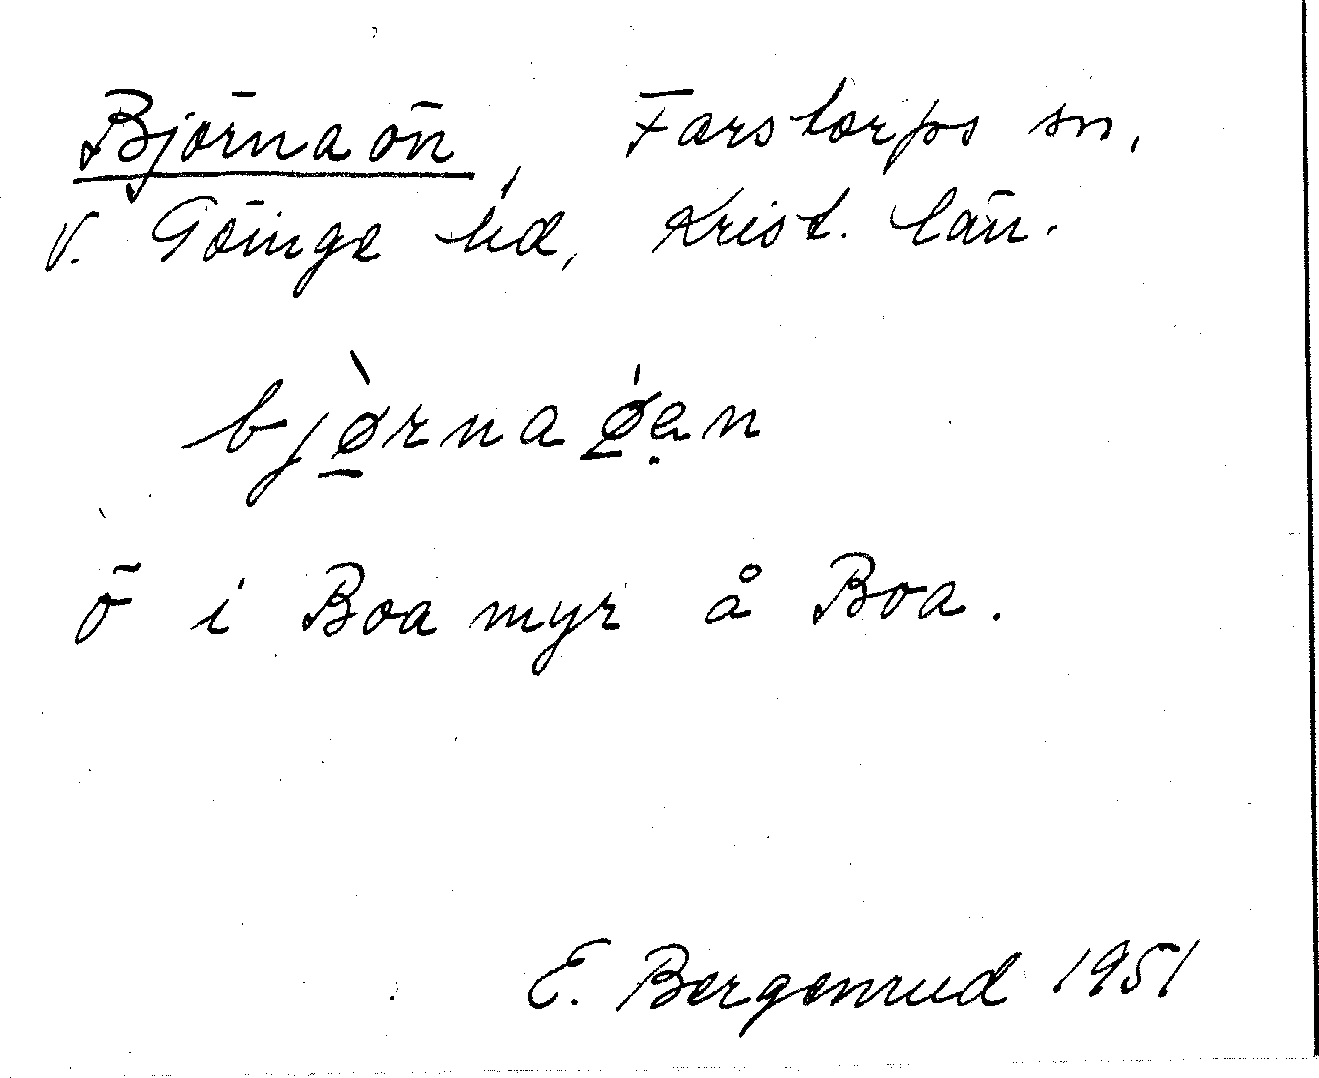 Björnaön, Farstorps sn,
V. Göinge hd, Krist. län.
bjø̠̀rnaǿ̠ẹn
ö i Boa myr å Boa.
E. Bergenrud 1951